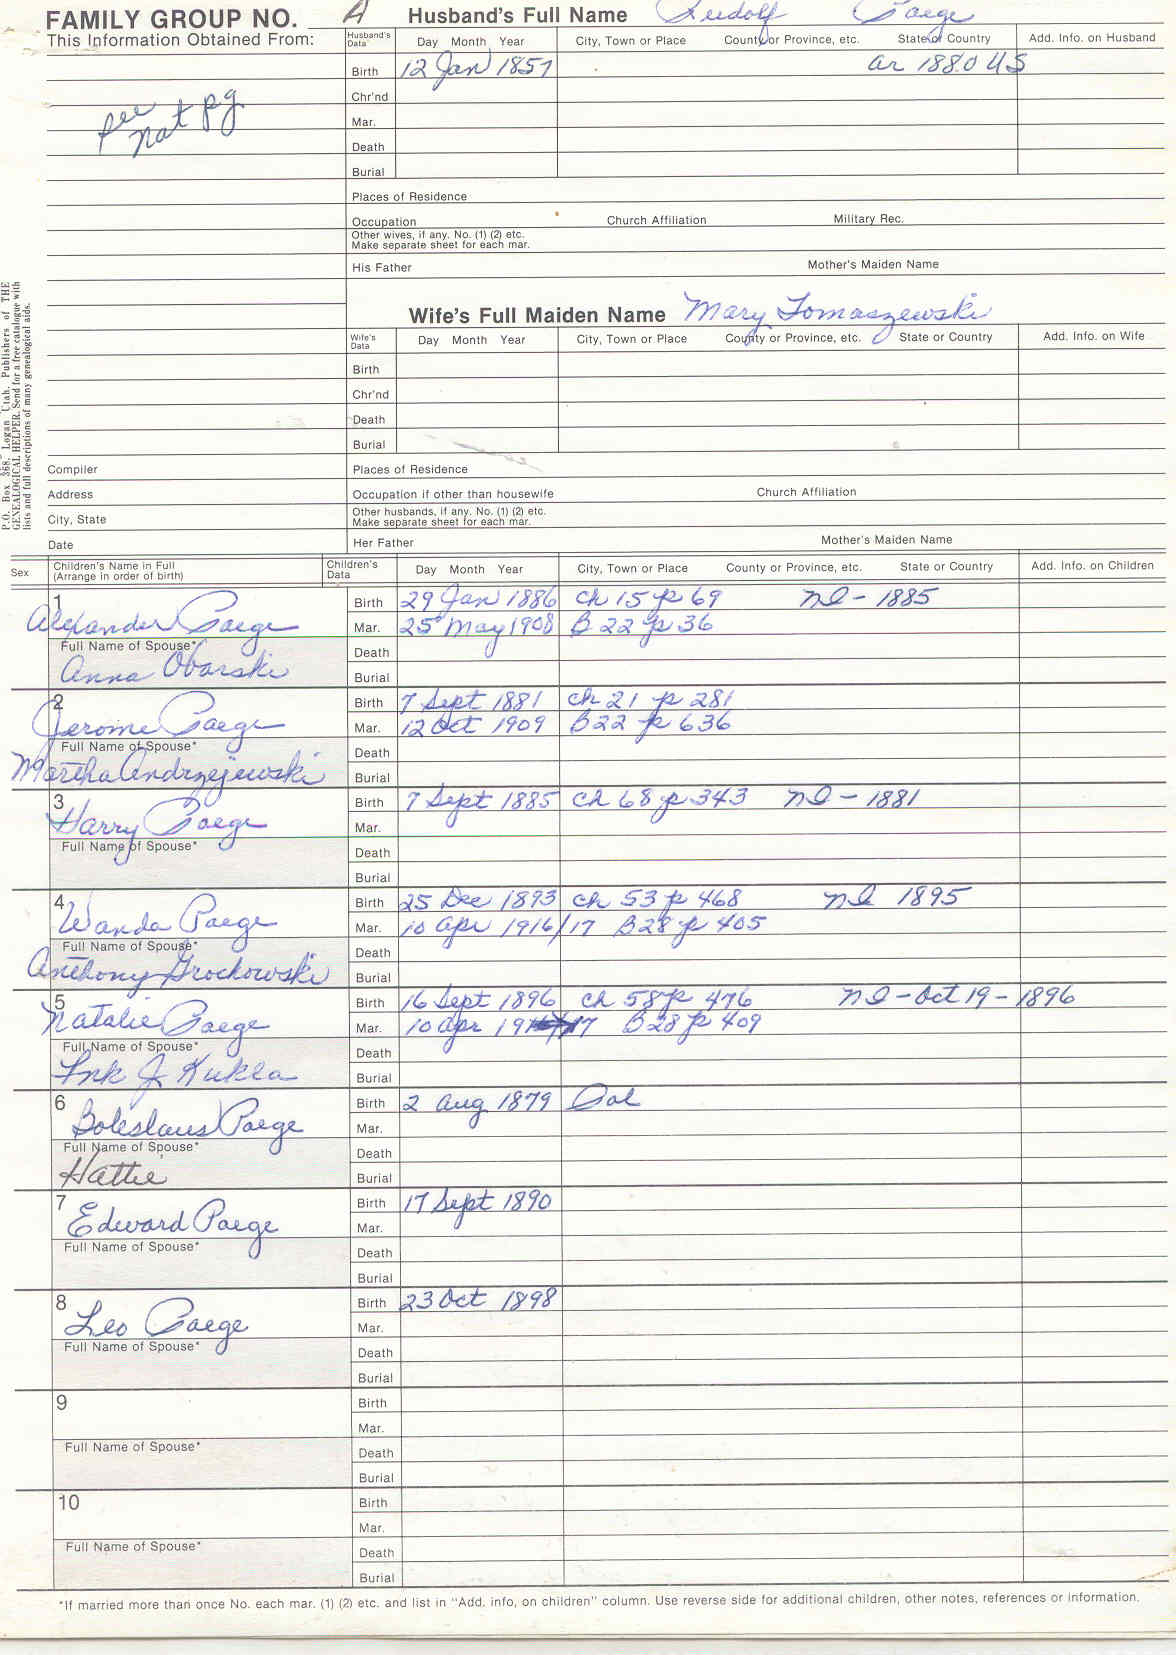 FAMILY GROUP NO. A Husband's Full Name Rudolf Paege
This Information Obtained From: Husband's Data Day Month Year City, Town or Place County or Province, etc. State or Country Add. Info. on Husband
Birth 12 Jan 1857 ar 1880 US
Chr'nd
see nat pg
Mar.
Death
Burial
Places of Residence
Occupation Church Affiliation Military Rec.
Other wives, if any. No. (1) (2) etc.
Make separate sheet for each mar.
His Father Mother's Maiden Name
Wife's Full Maiden Name Mary Tomaszewski
Wife's Data Day Month Year City, Town or Place County or Province, etc. State or Country Add. Info. on Wife
Birth
Chr'nd
Death
Burial
Compiler Places of Residence
Address Occupation if other than housewife Church Affiliation
City, State Other husbands, if any. No. (1) (2) etc.
Make separate sheet for each mar.
Date Her Father Mother's Maiden Name
P.O. Box 368, Logan Utah. Publishers of THE
GENEALOGICAL HELPER. Send for a free catalogue with
lists and full descriptions of many genealogical aids.
Sex Children's Name in Full
(Arrange in order of birth) Children's Data Day Month Year City, Town or Place County or Province, etc. State or Country Add. Info. on Children
1 Birth 29 Jan 1886 ch 15 p 69 NI - 1885
Alexander Paege Mar. 25 May 1908 B 22 p 36
Full Name of Spouse* Death
Anna Obarski Burial
2 Birth 7 Sept 1881 ch 21 p 281
Jerome Paege Mar. 12 Oct 1909 B22 p 636
Full Name of Spouse* Death
Martha Andrzejewski Burial
3 Birth 7 Sept 1885 ch 68 p 343 NI - 1881
Harry Paege Mar.
Full Name of Spouse* Death
Burial
4 Birth 25 Dec 1893 ch 53 p 468 NI 1895
Wanda Paege Mar. 10 apr 1916/17 B28 p 405
Full Name of Spouse* Death
Anthony Grochowski Burial
5 Birth 16 Sept 1896 ch 58 p 476 NI - Oct 19 - 1896
Natalie Paege Mar. 10 apr 19 17 B28 p 409
Full Name of Spouse* Death
Frk J Kukla Burial
6 Birth 2 Aug 1879 Pol
Boleslaus Paege Mar.
Full Name of Spouse* Death
Hattie Burial
7 Birth 17 Sept 1890
Edward Paege Mar.
Full Name of Spouse* Death
Burial
8 Birth 23 Oct 1898
Leo Paege Mar.
Full Name of Spouse* Death
Burial
9 Birth
Mar.
Full Name of Spouse* Death
Burial
10 Birth
Mar.
Full Name of Spouse* Death
Burial
*If married more than once No. each mar. (1) (2) etc. and list in "Add. info, on children" column. Use reverse side for additional children, other notes, references or information.